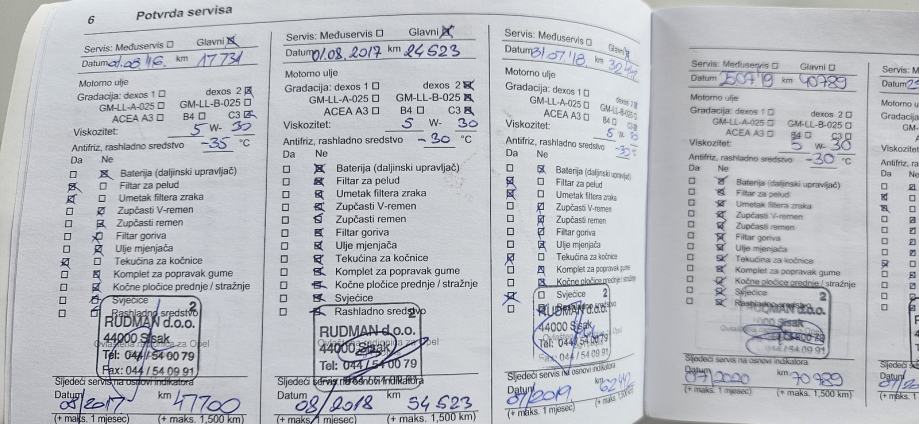 6 Potvrda servisa
Servis: Međuservis ☐ Glavni ☒
Datum 01.08.'16. km 17731
Motorno ulje
Gradacija: dexos 1 ☐ dexos 2 ☒
GM-LL-A-025 ☐ GM-LL-B-025 ☐
ACEA A3 ☐ B4 ☐ C3 ☒
Viskozitet: 5 W- 30
Antifriz, rashladno sredstvo -35 °C
Da Ne
Baterija (daljinski upravljač)
Filtar za pelud
Umetak filtera zraka
Zupčasti V-remen
Zupčasti remen
Filtar goriva
Ulje mjenjača
Tekućina za kočnice
Komplet za popravak gume
Kočne pločice prednje / stražnje
Svjećice
Rashladno sredstvo
2
RUDMAN d.o.o.
44000 Sisak
Tel: 044 / 54 00 79
Fax: 044 / 54 09 91
Sljedeći servis na osnovi indikatora
Datum 08/2017 km 47700
(+ maks. 1 mjesec) (+ maks. 1,500 km)
Servis: Međuservis ☐ Glavni ☒
Datum 01.08.2017 km 24523
Motorno ulje
Gradacija: dexos 1 ☐ dexos 2 ☒
GM-LL-A-025 ☐ GM-LL-B-025 ☒
ACEA A3 ☐ B4 ☐ C3 ☒
Viskozitet: 5 W- 30
Antifriz, rashladno sredstvo -30 °C
Da Ne
Baterija (daljinski upravljač)
Filtar za pelud
Umetak filtera zraka
Zupčasti V-remen
Zupčasti remen
Filtar goriva
Ulje mjenjača
Tekućina za kočnice
Komplet za popravak gume
Kočne pločice prednje / stražnje
Svjećice
Rashladno sredstvo
2
RUDMAN d.o.o.
44000 Sisak
Tel: 044 / 54 00 79
Fax: 044 / 54 09 91
Sljedeći servis na osnovi indikatora
Datum 08/2018 km 54523
(+ maks. 1 mjesec) (+ maks. 1,500 km)
Servis: Međuservis ☐ Glavni
Datum 31.07.'18. km
Motorno ulje
Gradacija: dexos 1 ☐ dexos 2
GM-LL-A-025 ☐ GM-LL-B-025
ACEA A3 ☐ B4 ☐ C3
Viskozitet: 5 W-
Antifriz, rashladno sredstvo
Da Ne
Baterija (daljinski upravljač)
Filtar za pelud
Umetak filtera zraka
Zupčasti V-remen
Zupčasti remen
Filtar goriva
Ulje mjenjača
Tekućina za kočnice
Komplet za popravak gume
Kočne pločice prednje / stražnje
Svjećice
Rashladno sredstvo
2
RUDMAN d.o.o.
44000 Sisak
Tel: 044 / 54 00 79
Fax: 044 / 54 09 91
Sljedeći servis na osnovi indikatora
Datum km
(+ maks. 1 mjesec) (+ maks. 1,500 km)
Servis: Međuservis ☐ Glavni ☐
Datum 25.07.'19 km 40789
Motorno ulje
Gradacija: dexos 1 ☐ dexos 2 ☐
GM-LL-A-025 ☐ GM-LL-B-025 ☐
ACEA A3 ☐ B4 ☐ C3
Viskozitet: 5 W- 30
Antifriz, rashladno sredstvo -30 °C
Da Ne
Baterija (daljinski upravljač)
Filtar za pelud
Umetak filtera zraka
Zupčasti V-remen
Zupčasti remen
Filtar goriva
Ulje mjenjača
Tekućina za kočnice
Komplet za popravak gume
Kočne pločice prednje / stražnje
Svjećice
Rashladno sredstvo
2
RUDMAN d.o.o.
Sisak
Sljedeći servis na osnovi indikatora
Datum 07/2020 km 70989
(+ maks. 1 mjesec) (+ maks. 1,500 km)